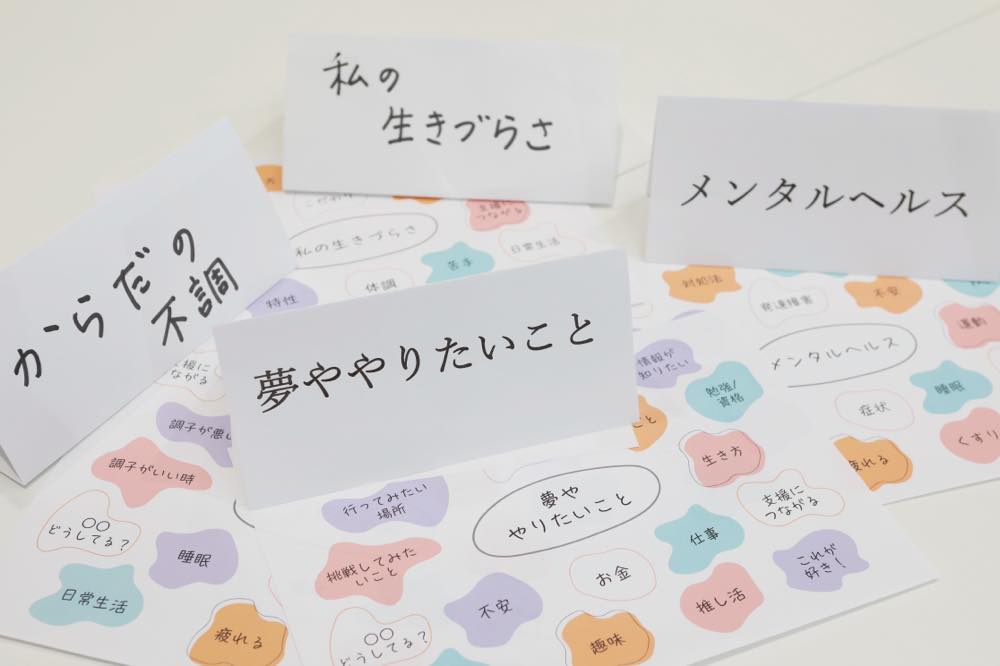 私の
生きづらさ
メンタルヘルス
からだの
不調
夢ややりたいこと
私の生きづらさ
支援に
つながる
日常生活
苦手
体調
特性
対処法
発達障害
不安
運動
メンタルヘルス
睡眠
症状
くすり
疲れる
情報が
知りたい
勉強/
資格
生き方
支援に
つながる
調子が悪い
調子がいい時
〇〇
どうしてる?
睡眠
日常生活
疲れる
行ってみたい
場所
夢や
やりたいこと
支援に
つながる
挑戦してみた
いこと
仕事
これが
好き!
お金
不安
推し活
〇〇
どうしてる?
趣味